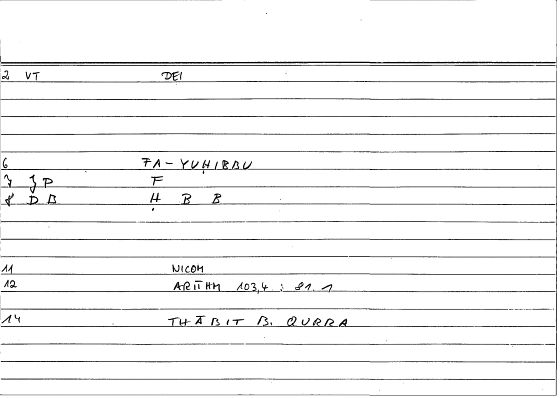 2 VT DEI
6 FA-YUḤIBBU
7 JP F
8 DB Ḥ B B
11 NICOM
12 ARITHM 103,4 : 81.1
14 THĀBIT B. QURRA